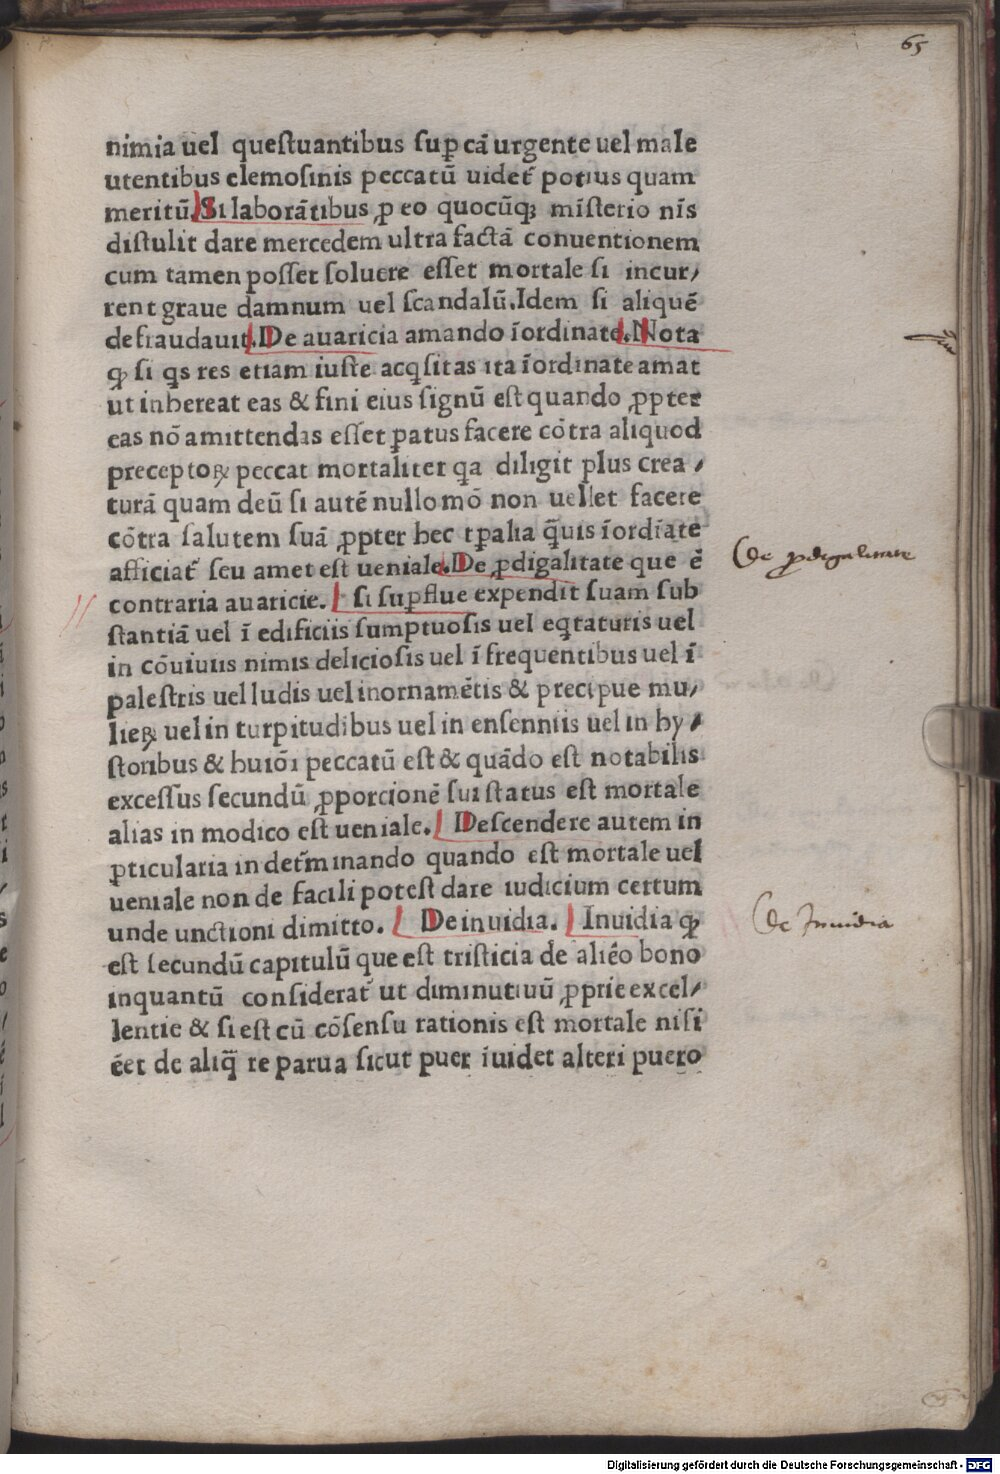 65
nimia uel queſtuantibus ſuꝑ cā urgente uel male
utentibus elemoſinis peccatū uidet̄ potius quam
meritū. Si laborātibus ꝓ eo quocūqꝫ miſterio nīs
diſtulit dare mercedem ultra factā conuentionem
cum tamen poſſet ſoluere eſſet mortale ſi incur/
rent graue damnum uel ſcandalū. Idem ſi aliquē
defraudauit. De auaricia amando īordinate. Nota
ꝙ ſi qs res etiam iuſte acqſitas ita īordinate amat
ut inhereat eas & fini eius ſignū eſt quando ꝓpter
eas nō amittendas eſſet ꝑatus facere cōtra aliquod
preceptoꝝ peccat mortaliter qa diligit plus crea/
turā quam deū ſi autē nullo mō non uellet facere
cōtra ſalutem ſuā ꝓpter hec tꝑalia q̄uis īordīate
afficiat̄ ſeu amet eſt ueniale. De ꝓdigalitate que ē
contraria auaricie. ſi ſuꝑflue expendit ſuam ſub
ſtantiā uel ī edificiis ſumptuoſis uel eqtaturis uel
in cōuiuiis nimis delicioſis uel ī frequentibus uel ī
paleſtris uel ludis uel in ornamētis & precipue mu/
lieꝝ uel in turpitudibus uel in enſenniis uel in hy/
ſtoribus & huiōi peccatū eſt & quādo eſt notabilis
exceſſus ſecundū ꝓporcionē ſui ſtatus eſt mortale
alias in modico eſt ueniale. Deſcendere autem in
ꝑticularia in det̄minando quando eſt mortale uel
ueniale non de facili poteſt dare iudicium certum
unde unctioni dimitto. De inuidia. Inuidia ꝙ
eſt ſecundū capitulū que eſt triſticia de aliēo bono
inquantū conſiderat̄ ut diminutiuū ꝓprie excel/
lentie & ſi eſt cū cōſenſu rationis eſt mortale niſi
ēet de aliq̄ re parua ſicut puer īuidet alteri puero
de ꝓdigalitate
de Inuidia
Digitalisierung gefördert durch die Deutsche Forschungsgemeinschaft - DFG